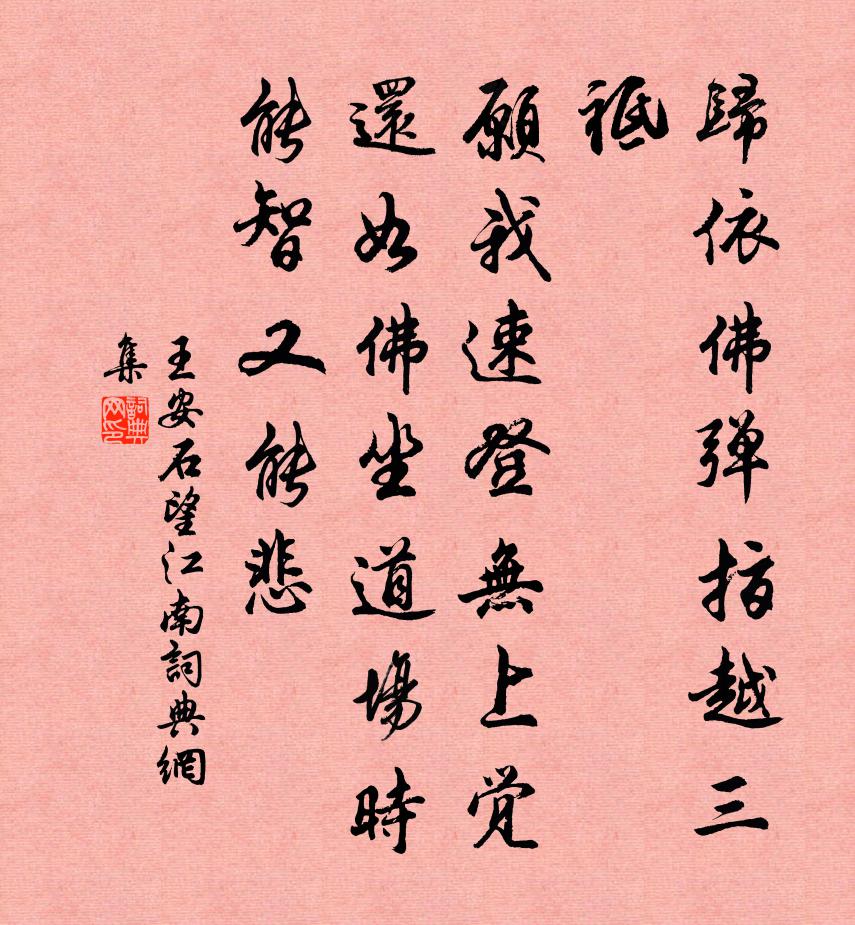 歸依佛弹指越三
祗
願我速登無上覺
還如佛坐道場時
能智又能悲
王安石望江南詞典網
集
詞典網印